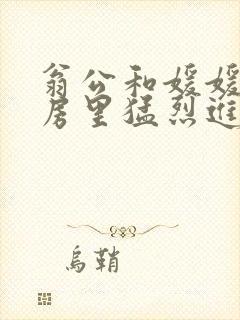 翁公和媛媛
房里猛烈进
乌鞘